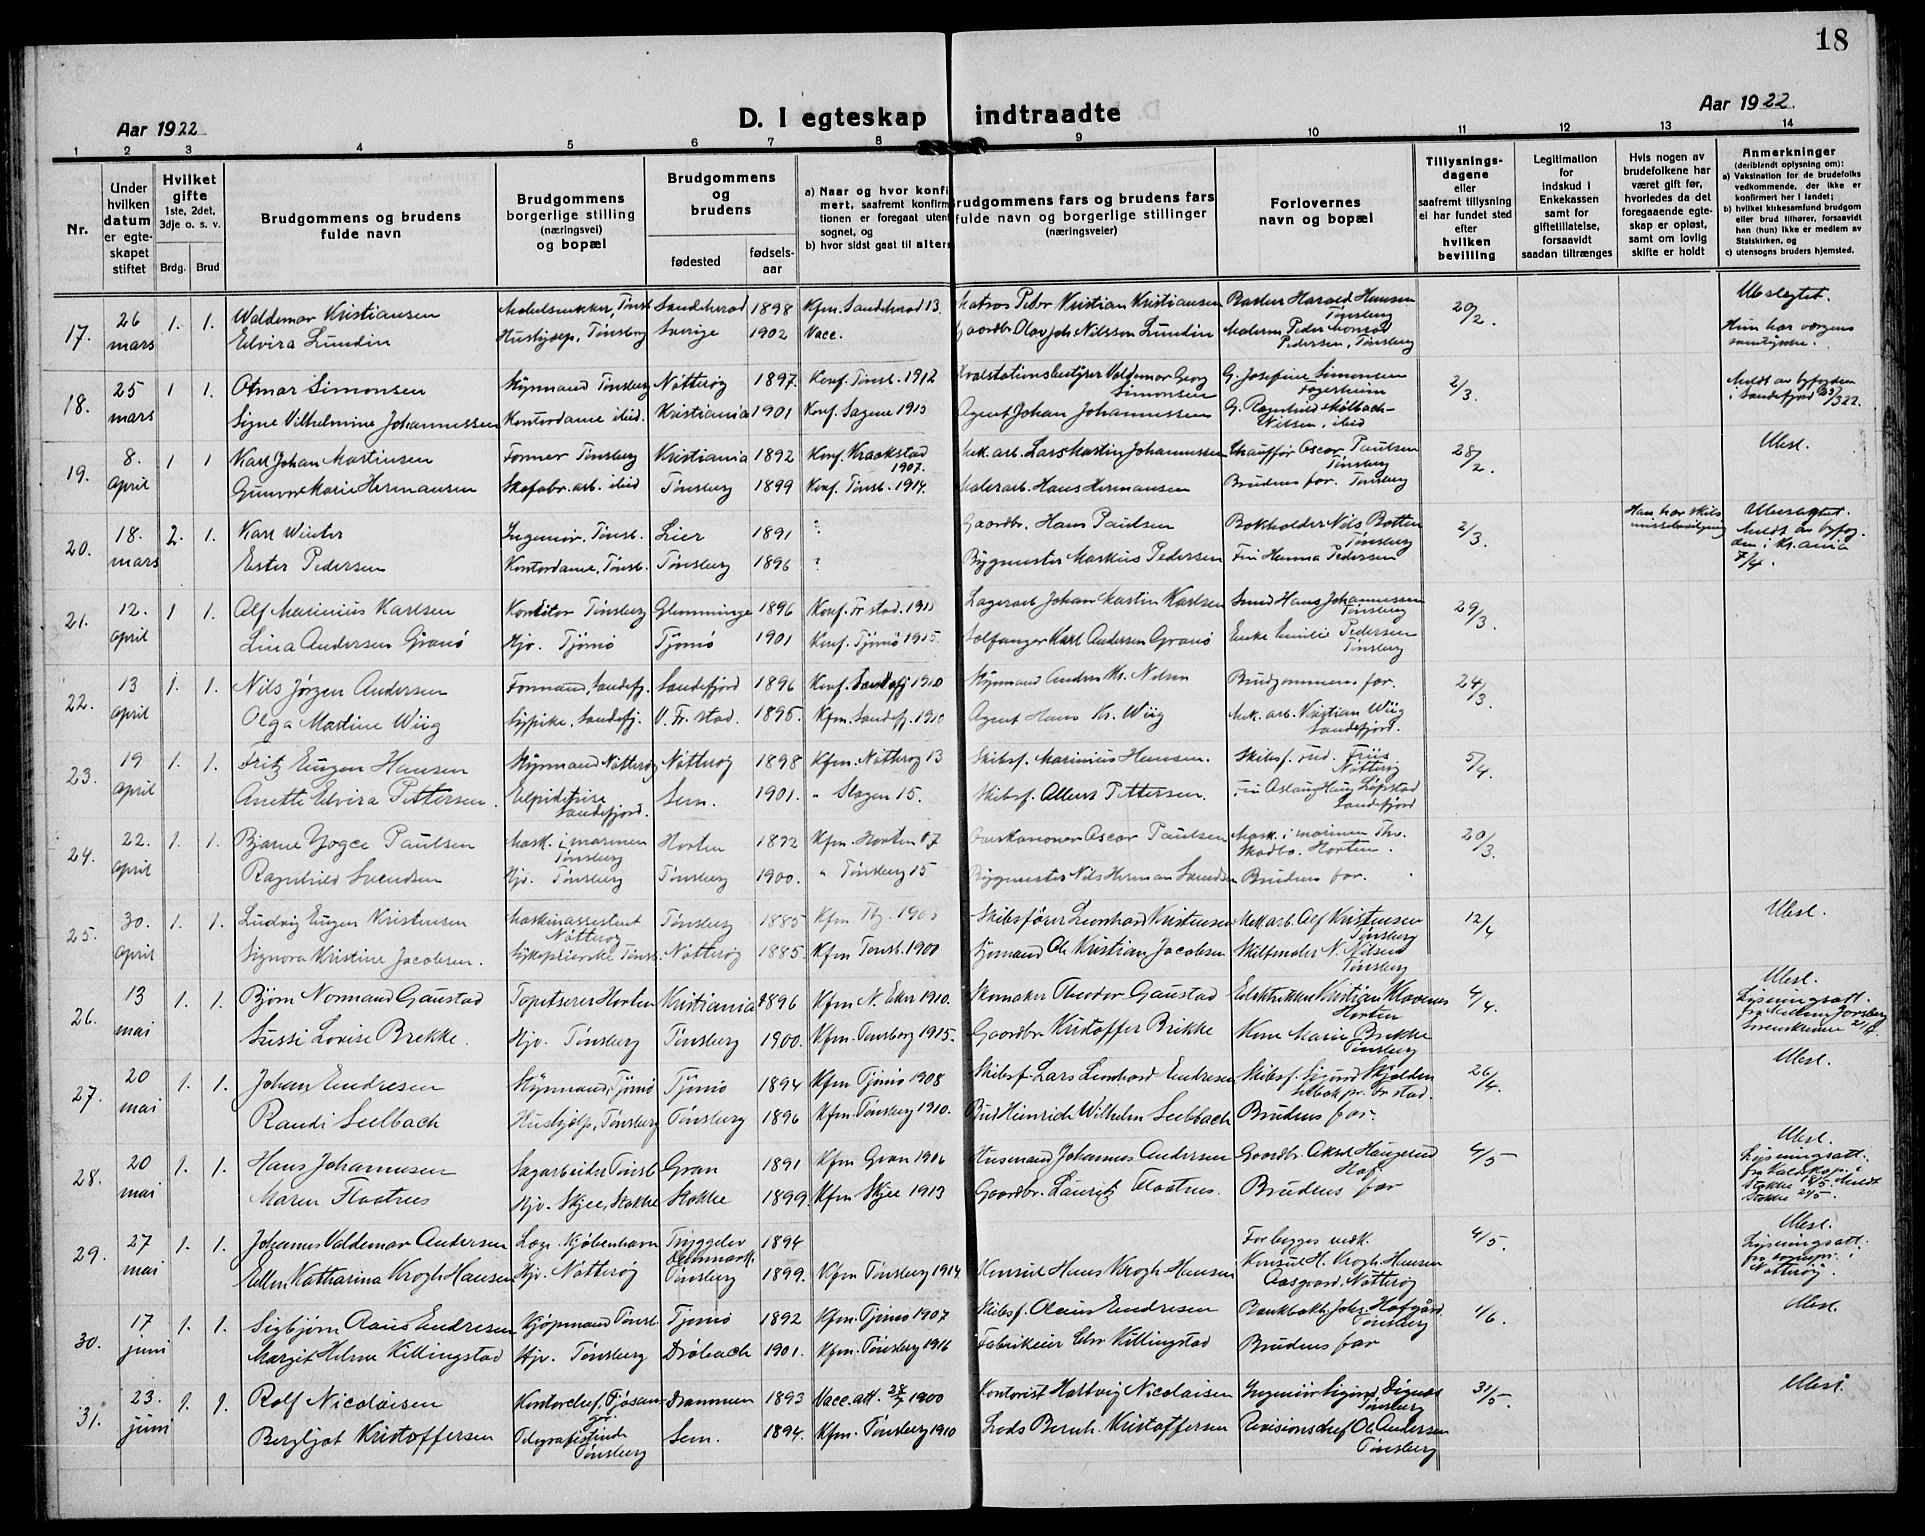 18
Aar 1922
D. I egteskap indtraadte
Aar 1922.
1 2 3 4 5 6 7 8 9 10 11 12 13 14
Nr.
Under hvilken datum er egte-skapet stiftet
Hvilket gifte
1ste, 2det, 3dje o. s. v.
Brdg. Brud
Brudgommens og brudens fulde navn
Brudgommens borgerlige stilling (næringsvei) og bopæl
Brudgommens og brudens
fødested
fødsels-aar
a) Naar og hvor konfi
mert, saafremt konfirm
tionen er foregaat uten
sognet, og
b) hvor sidst gaat til alters
Brudgommens fars og brudens fars
fulde navn og borgerlige stillinger
(næringsveier)
Forlovernes
navn og bopæl
Tillysnings-
dagene
eller
saafremt tillysning
ei har fundet sted
efter
hvilken
bevilling
Legitimation
for
indskud i
Enkekassen
samt for
giftetillatelse,
forsaavidt
saadan tiltrænges
Hvis nogen av
brudefolkene har
været gift før,
hvorledes da det
foregaaende egte-
skap er opløst,
samt om lovlig
skifte er holdt
Anmerkninger
(deriblandt oplysning om):
a) Vaksination for de brudefolks
vedkommende, der ikke er
konfirmert her i landet;
b) hvilket kirkesamfund brudgom
eller brud tilhører, forsaavidt
han (hun) ikke er medlem av
Statskirken, og
c) utensogns bruders hjemsted.
17. 26 mars 1. 1. Waldemar Kristiansen Sandeherad 1898 Kfm. Sandeherad 13. Matros Peder Kristian Kristiansen Harald Hansen Tønsberg 20/2. Ubeslegtet.
Elvira Lundin Hushjelp, Tønsberg Sverige 1902 Vacc. Gaardbr. Olav Joh. Nilsson Lundin Peder Monrad Pedersen, Tønsberg Hun har værgens samtykke.
18. 25 mars 1 1. Otmar Simonsen Styrmand Tønsberg Nøtterøy 1897. Konf. Tønsb. 1912 Hvalstationsbestyrer Valdemar Georg Simonsen G. Josefine Simonsen Fagerheim 2/3. Meldt av byfogden i Sandefjord 25/3 22.
Signe Vilhelmine Johannessen Kontordame ibid. Kristiania 1901 Konf. Sagene 1915 Agent Johan Johannessen G. Ragnhild Nilsen, ibid
19. 8. april 1 1 Karl Johan Martinsen Former Tønsberg Kristiania 1892 Konf. Kraakstad 1907. Mek. arb. Lars Martin Johannessen Chauffør Oscar Paulsen Tønsberg 28/2. Ubesl.
Gunvor Marie Hermansen Skofabr. arb. ibid Tønsberg 1899 Konf. Tønsb. 1914. Malerarb. Hans Hermansen Brudens far. Tønsberg
20. 18. mars 2. 1. Karl Winter Ingeniør, Tønsb. Lier 1891 ? Gaardbr. Hans Paulsen Bokholder Nils Botten Tønsberg 2/3. Han har skilsmissebevilgning Ubeslegtet. Meldt av byfogden i Kr.ania 7/4.
Ester Pedersen Kontordame, Tønsb. Tønsberg 1896 ? Bygmester Markus Pedersen Frk Hanna Pedersen
21. 12. april 1 1. Alf Marinius Karlsen Konditor Tønsberg Glemminge 1896 Konf. Fr.stad. 1910 Lagerarb. Johan Martin Karlsen Smed Hans Johannessen Tønsberg 29/3.
Lina Andersen Granø Hjv. Tjømø Tjømø 1901 Konf. Tjømø 1915 Selfanger Karl Andersen Granø Enke Emilie Pedersen Tønsberg
22. 13 april 1. 1. Nils Jørgen Andersen Formand, Sandefj. Sandefjord 1896 Konf. Sandefj 1910 Styrmand Anders Kr. Nilsen Brudgommens far. 24/3.
Olga Martine Wiig Sypike, Sandefj. V. Fr. stad. 1895. Kfm. Sandefj. 1910 Agent Hans Kr. Wiig Mek. arb. Kristian Wiig Sandefjord.
23. 19 april 1. 1. Fritz Eugen Hansen Styrmand Nøtterøy Nøtterøy 1898 Kfm. Nøtterøy 13 Skibsf. Marinius Hansen. Skibsf. Friis Nøtterøy 5/4.
Anette Elvira Pettersen. Sandefjord. Sem. 1901. " Slagen 15. Skibsf. Albert Pettersen. Frk Aslaug Haug Løpstad Sandefjord
24. 22. april 1. 1. Bjarne Yngve Paulsen Mask. i marinen Tønsberg Horten 1892 Kfm. Horten 07 Overkanoner Oscar Paulsen Mask. i marinen Ths. Skadbo. Horten. 20/3.
Ragnhild Svendsen Hjv. Tønsberg Tønsberg 1900. " Tønsberg 15 Bygmester Nils Herman Svendsen Brudens far.
25. 30. april 1. 1. Ludvig Eugen Kristensen Maskinassistent Nøtterøy Tønsberg 1885 Kfm Tbg. 1900 Skibsfører Leonhard Kristensen Mek arb. Alf Kristensen Tønsberg 12/4 Ubesl.
Signora Kristine Jacobsen. Sykepleierske Tønsb. Nøtterøy 1885. Kfm Tønsb. 1900 Sjømand Ole Kristian Jacobsen Skiltmaler N. Nilsen Tønsberg
26. 13 mai 1. 1. Bjørn Normand Gaustad Tapetserer Horten Kristiania 1896 Kfm. N. Eker 1910. Skomaker Theodor Gaustad Elektriker Kristian Klavenes Horten 4/4. Ubesl. Lysningsatt. fra Mellem Jarlsberg Sorenskriveri 21/4.
Sussi Lovise Brekke. Hjv. Tønsberg Tønsberg 1900. Kfm. Tønsberg 1915. Gaardbr. Kristoffer Brekke Kone Marie Brekke Tønsberg
27. 20 mai 1. 1. Johan Endresen Styrmand, Tjømø Tjømø 1894 Kfm Tjømø 1908 Skibsf. Lars Leonhard Endresen Skibsf. Sigurd Skjelden Selbak pr. Fr.stad. 26/4. Ubesl.
Randi Seelbach Hushjelp, Tønsberg Tønsberg 1896 Kfm. Tønsberg 1910. Bud Heinrich Wilhelm Seelbach Brudens far.
28. 20 mai 1. 1. Hans Johannesen Sagarbeider Tønsb Gran 1891 Kfm Gran 1906 Husmand Johannes Andersen Gaardbr. Aksel Haugerud Hof. 4/5 Ubesl. Lysningsatt. fra Valdskap. i Stokke 18/5. Meldt Stokke 24/5.
Maren Flaatnes Hjv. Skjee, Stokke Stokke 1899. Kfm Skjee 1913 Gaardbr. Lauritz Flaatnes. Brudens far
29. 27 mai 1. 1. Johannes Valdemar Andersen Læge. Kjøbenhavn Tryggelev Danmark. 1894 Forbygges vedk. 4/5. Ubesl. Lysningsatt. fra sognepr. i Nøtterøy.
Ellen Katharina Krogh Hansen Hjv. Nøtterøy Tønsberg 1899. Kfm Tønsberg 1914. Konsul Hans Krogh-Hansen Konsul H. Krogh-Hansen Aasgaard. Nøtterøy
30. 17 juni 1. 1. Sigbjørn Claus Endresen Kjøpmand Tønsb. Tjømø 1892 Kfm. Tjømø 1907 Skibsf. Claus Endresen Bankbokh. Johs. Hafgård Tønsberg 1/6. Ubesl.
Margit Helene Killingstad Hjv. Tønsberg Drøbach 1901. Kfm. Tønsberg 1916 Fabrikeier Chr Killingstad Brudens far
31. 23. juni 1. 1. Rolf Nicolaisen Kontorchef. Tjøsanger. Drammen 1893 Vacc. att. 28/7 1900 Kontorist Haltvig Nicolaisen Ingeniør Sigurd Tønsberg 31/5. Ubesl.
Bergljot Kristoffersen Telegrafistinde Tønsberg Sem. 1894. Kfm. Tønsberg 1910 Lods Bernh. Kristoffersen Revisionschef Ol. Andersen Tønsberg